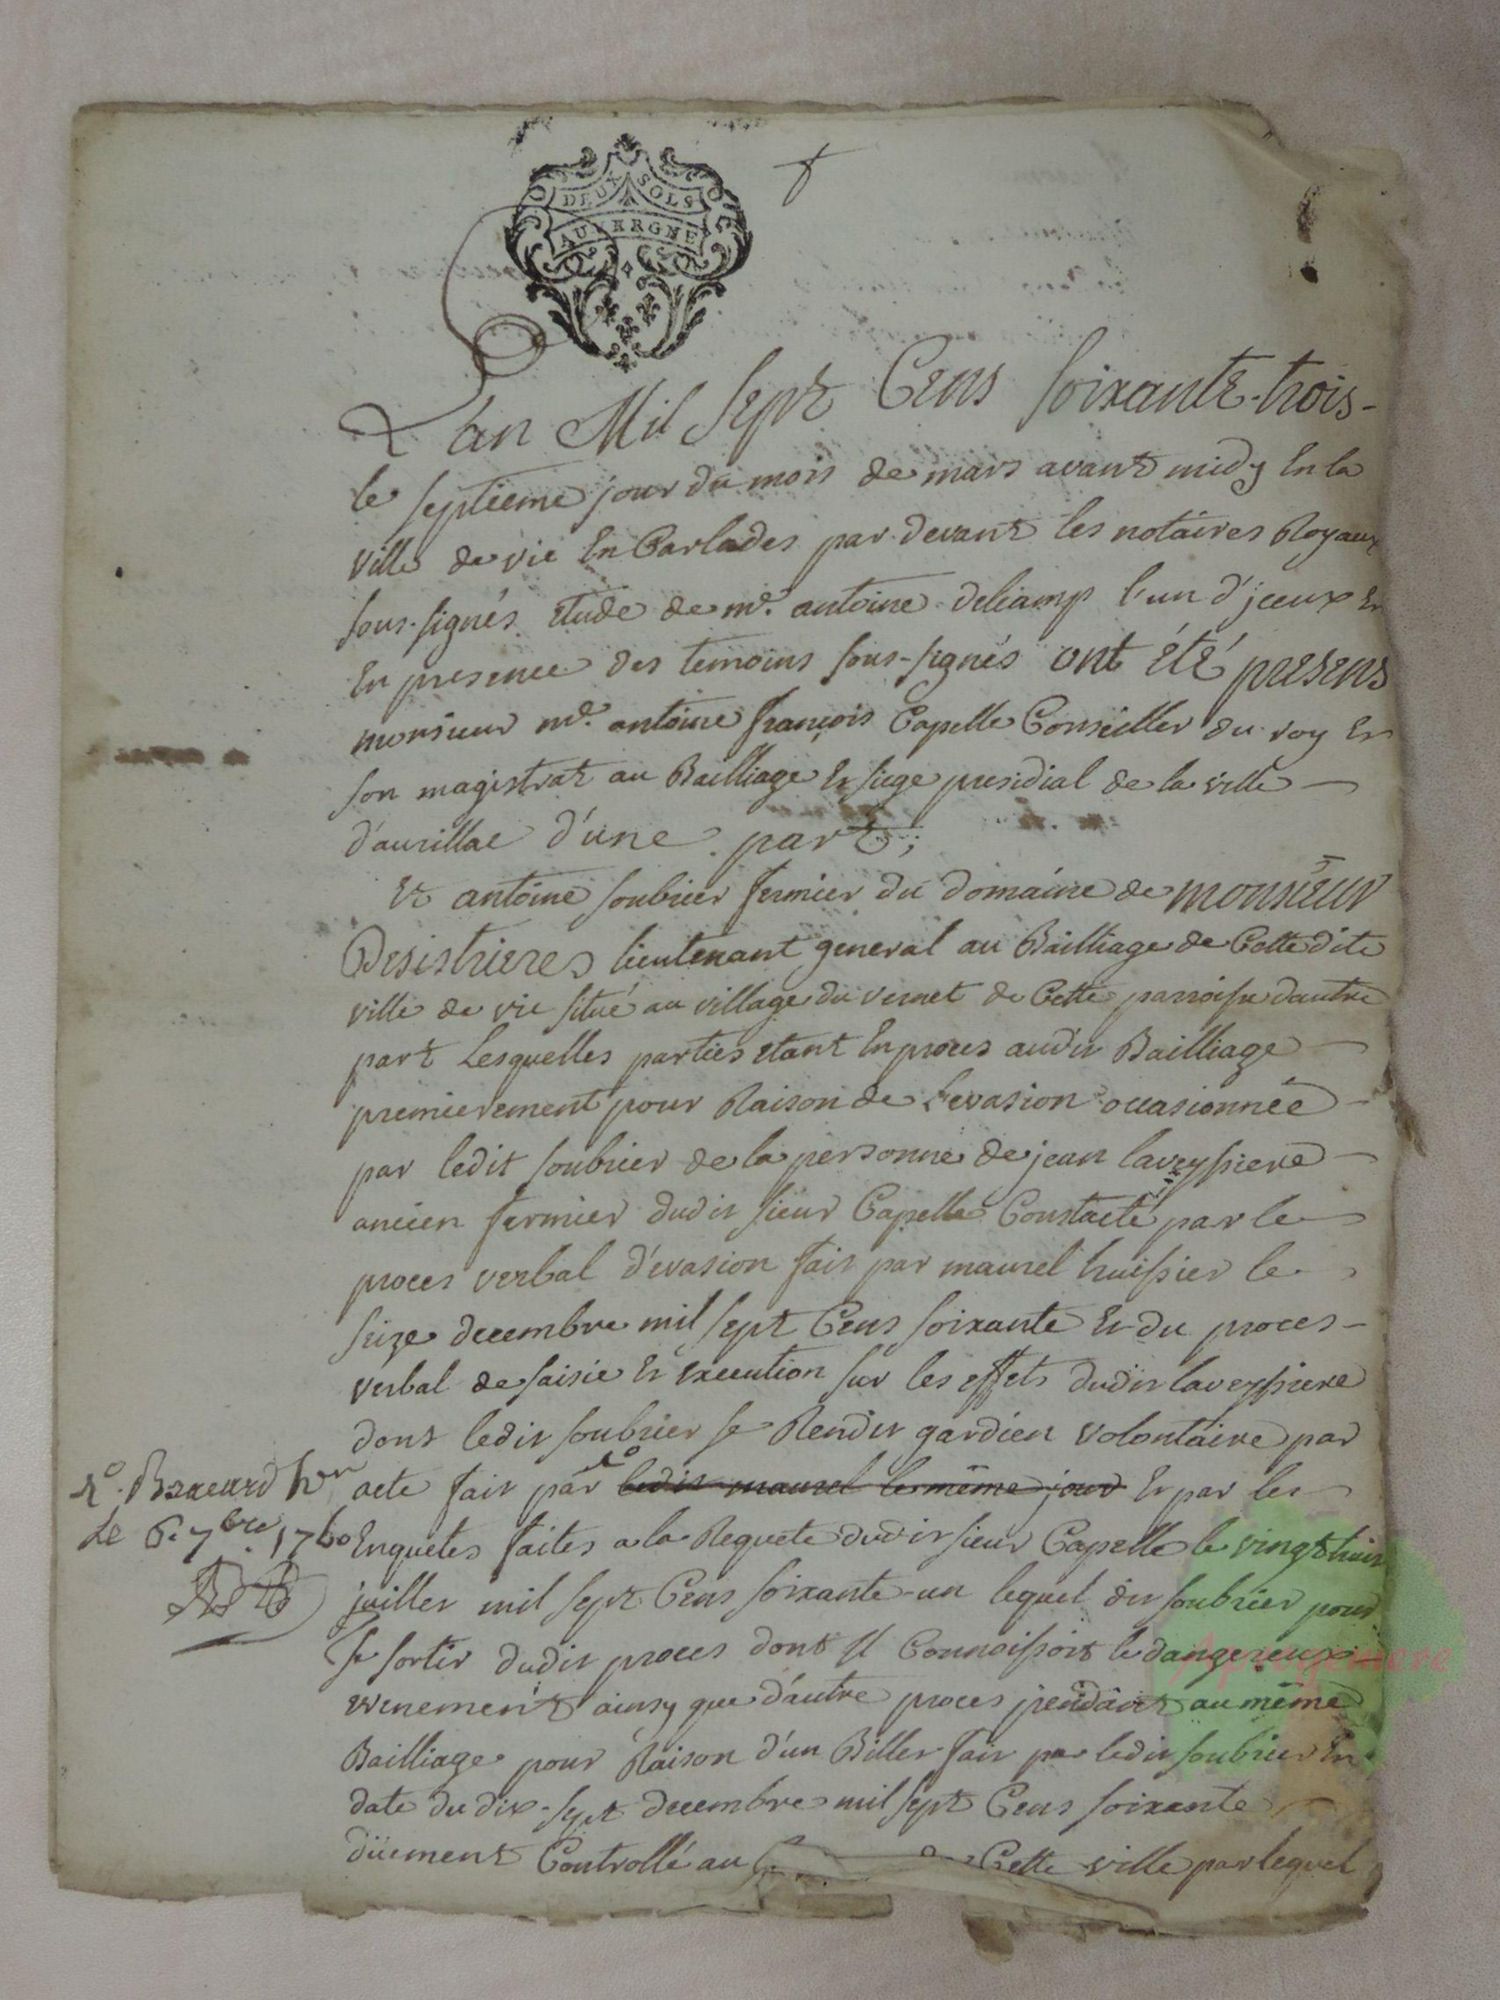 DEUX SOLS
AUVERGNE
L'an Mil Sept Cens Soixante-trois-
le septieme jour du mois de mars avant midy En la
ville de vic En Carladés par-devant les notaires Royaux
sous-signés Etude de me. antoine deliamp l'un d'jceux Et
En presence des temoins sous-signés ont été presens
monsieur me. antoine françois Capelle Conseiller du roy Et
son magistrat au Bailliage Et siege presidial de la ville
d'aurillac d'une part;
Et antoine soubrier fermier du domaine de monsieur
Desistrieres lieutenant general au Bailliage de Cette dite
ville de vic situé au village du vernet de Cette parroisse d'autre
part Lesquelles parties etant En proces audit Bailliage
premierement pour Raison de L'evasion occasionnée
par ledit soubrier de la personne de jean laveyssiere
ancien fermier dudit sieur Capelle Constacté par le
proces verbal d'evasion fait par maurel huissier le
seize decembre mil sept Cens soixante Et du proces-
verbal de saisie Et execution sur les effets dudit laveyssiere
dont ledit soubrier se Rendit gardien volontaire par
acte fait par ledit maurel le même jour Et par les
Enquetes faites a la Requete dudit sieur Capelle le vingt huit
juillet mil sept Cens soixante-un lequel dit soubrier pour
se sortir dudit proces dont il Connoissoit le dangereux
evenement ainsy que d'autre proces pendant au même
Bailliage pour Raison d'un Billet fait par ledit soubrier En
date du dix-sept decembre mil sept Cens soixante
düement Controllé au Cette ville par lequel
Le 6. 7bre. 1760